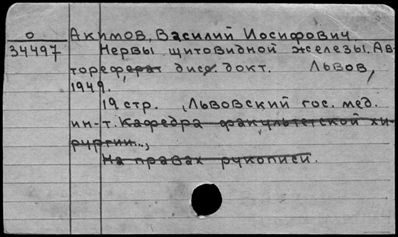 О Акимов, Василий Иосифович
34497 Нервы щитовидной железы. Ав-
тореферат дисс. докт. Львов,
1949.
19 стр. (Львовский гос. мед.
ин-т. Кафедра факультетской хи-
рургии.,
На правах рукописи.